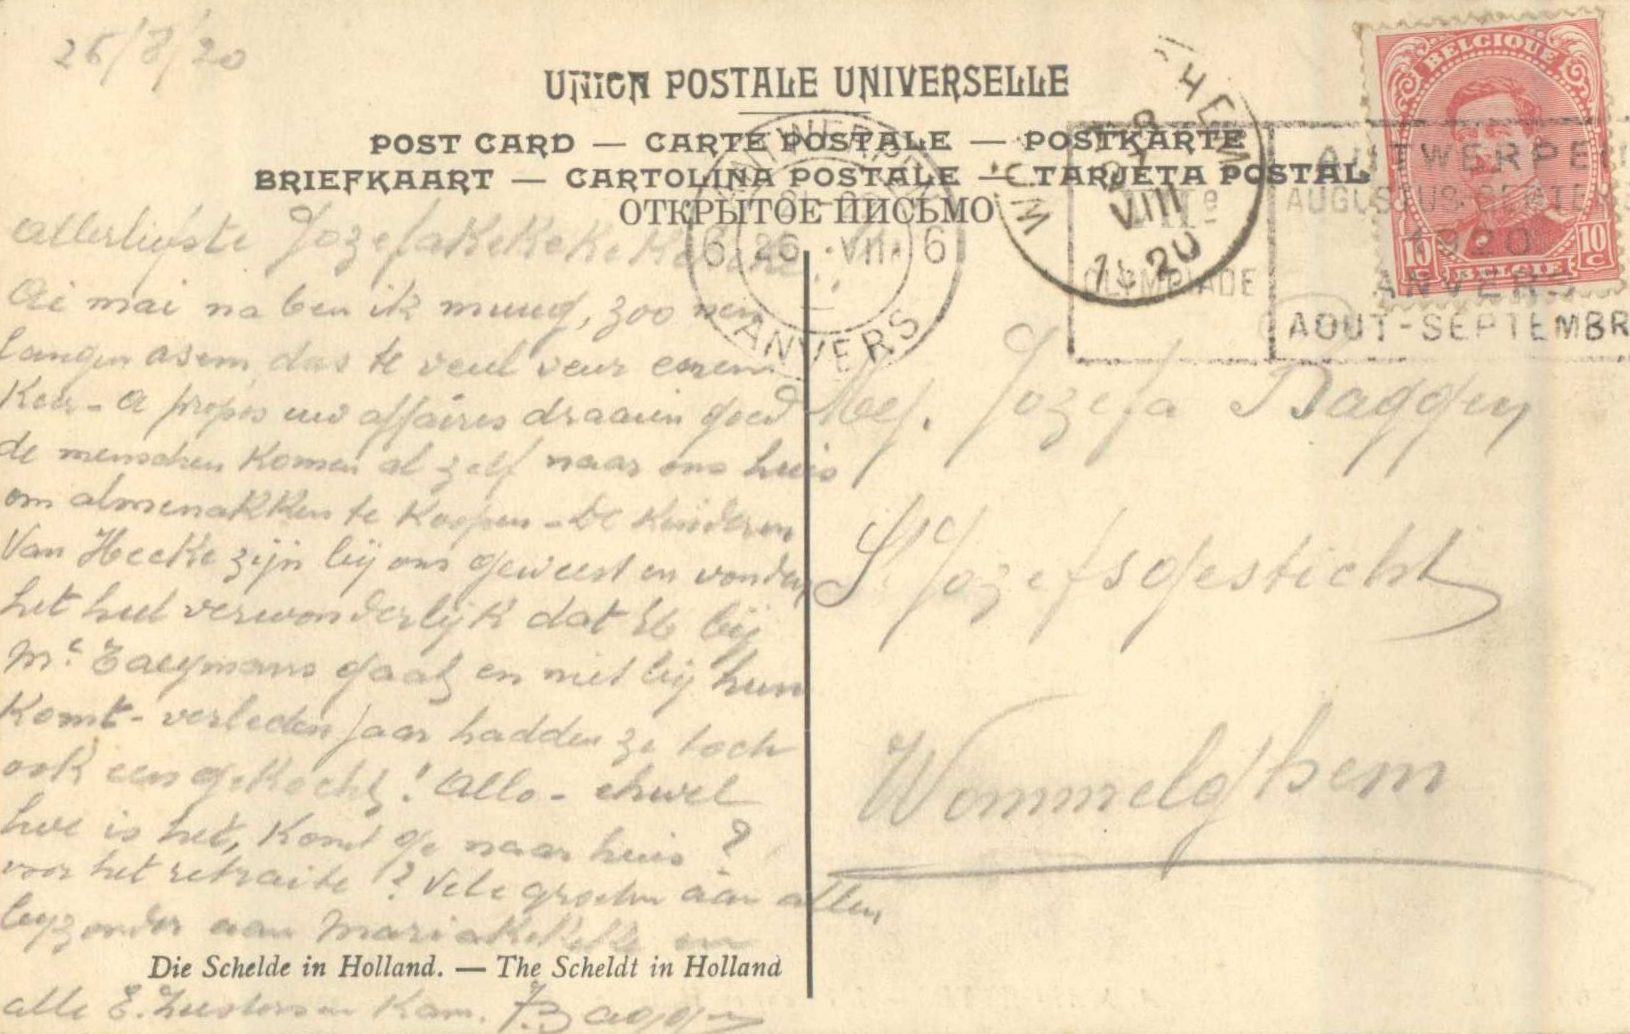 25/8/20
UNION POSTALE UNIVERSELLE
POST CARD — CARTE POSTALE — POSTKARTE
BRIEFKAART — CARTOLINA POSTALE — TARJETA POSTAL
ОТКРЫТОЕ ПИСЬМО
BELGIQUE
10 C 10 C
BELGIE
ANTWERPEN
6 26 VIII 6
ANVERS
VIII
20
VIIe
OLYMPIADE
ANTWERPEN
AUGUSTUS-SEPTEMBE
1920
ANVERS
AOUT-SEPTEMBR
allerliefste
Ai mai na ben ik muug, zoo nen
langen asem, das te veul veur eenen
Keer - A propos uw affaires draaien goed
de menschen komen al zelf naar ons huis
om almenakken te Koopen - De Kinderen
Van Heeke zijn bij ons geweest en vonden
het heel verwonderlijk dat bij
gaat en niet bij hun
Komt - verleden jaar hadden ze toch
ook een gekocht! Allo - ehwel
hoe is het, Komt ge naar huis ?
voor het retraite ? Vele groeten aan allen
byzonder aan en
alle E. Zusters en Kam. Baggen
Mej. Jozefa Baggen
St Jozefsgesticht
Wommelghem
Die Schelde in Holland. — The Scheldt in Holland